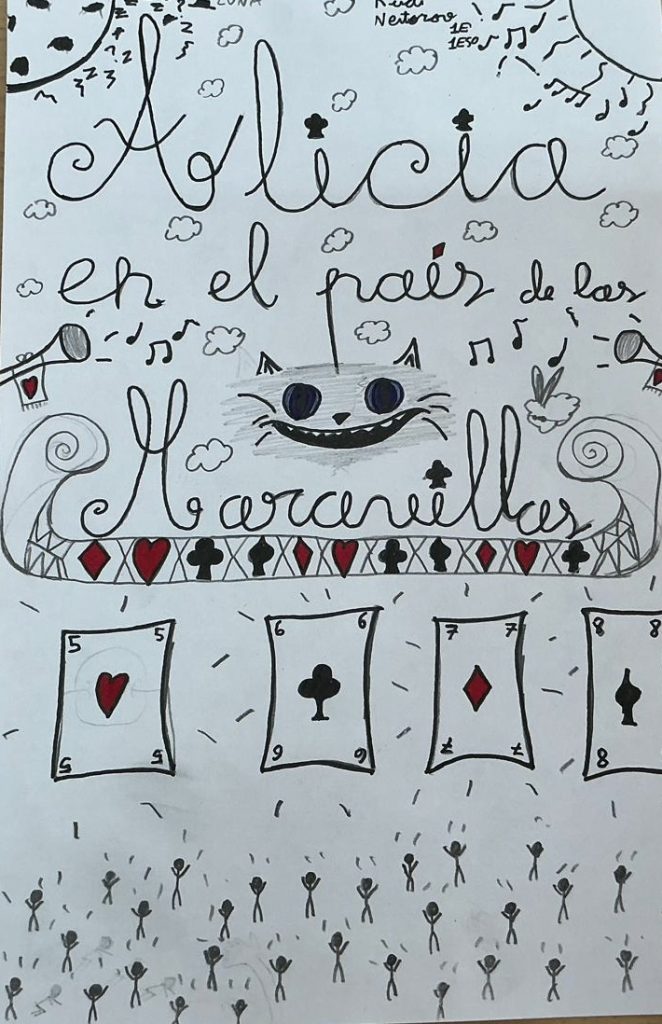 LUNA
1E
1ESO
Alicia
en el país de las
Maravillas
5 5 6 6 7 7 8 8
5 5 6 6 7 7 8